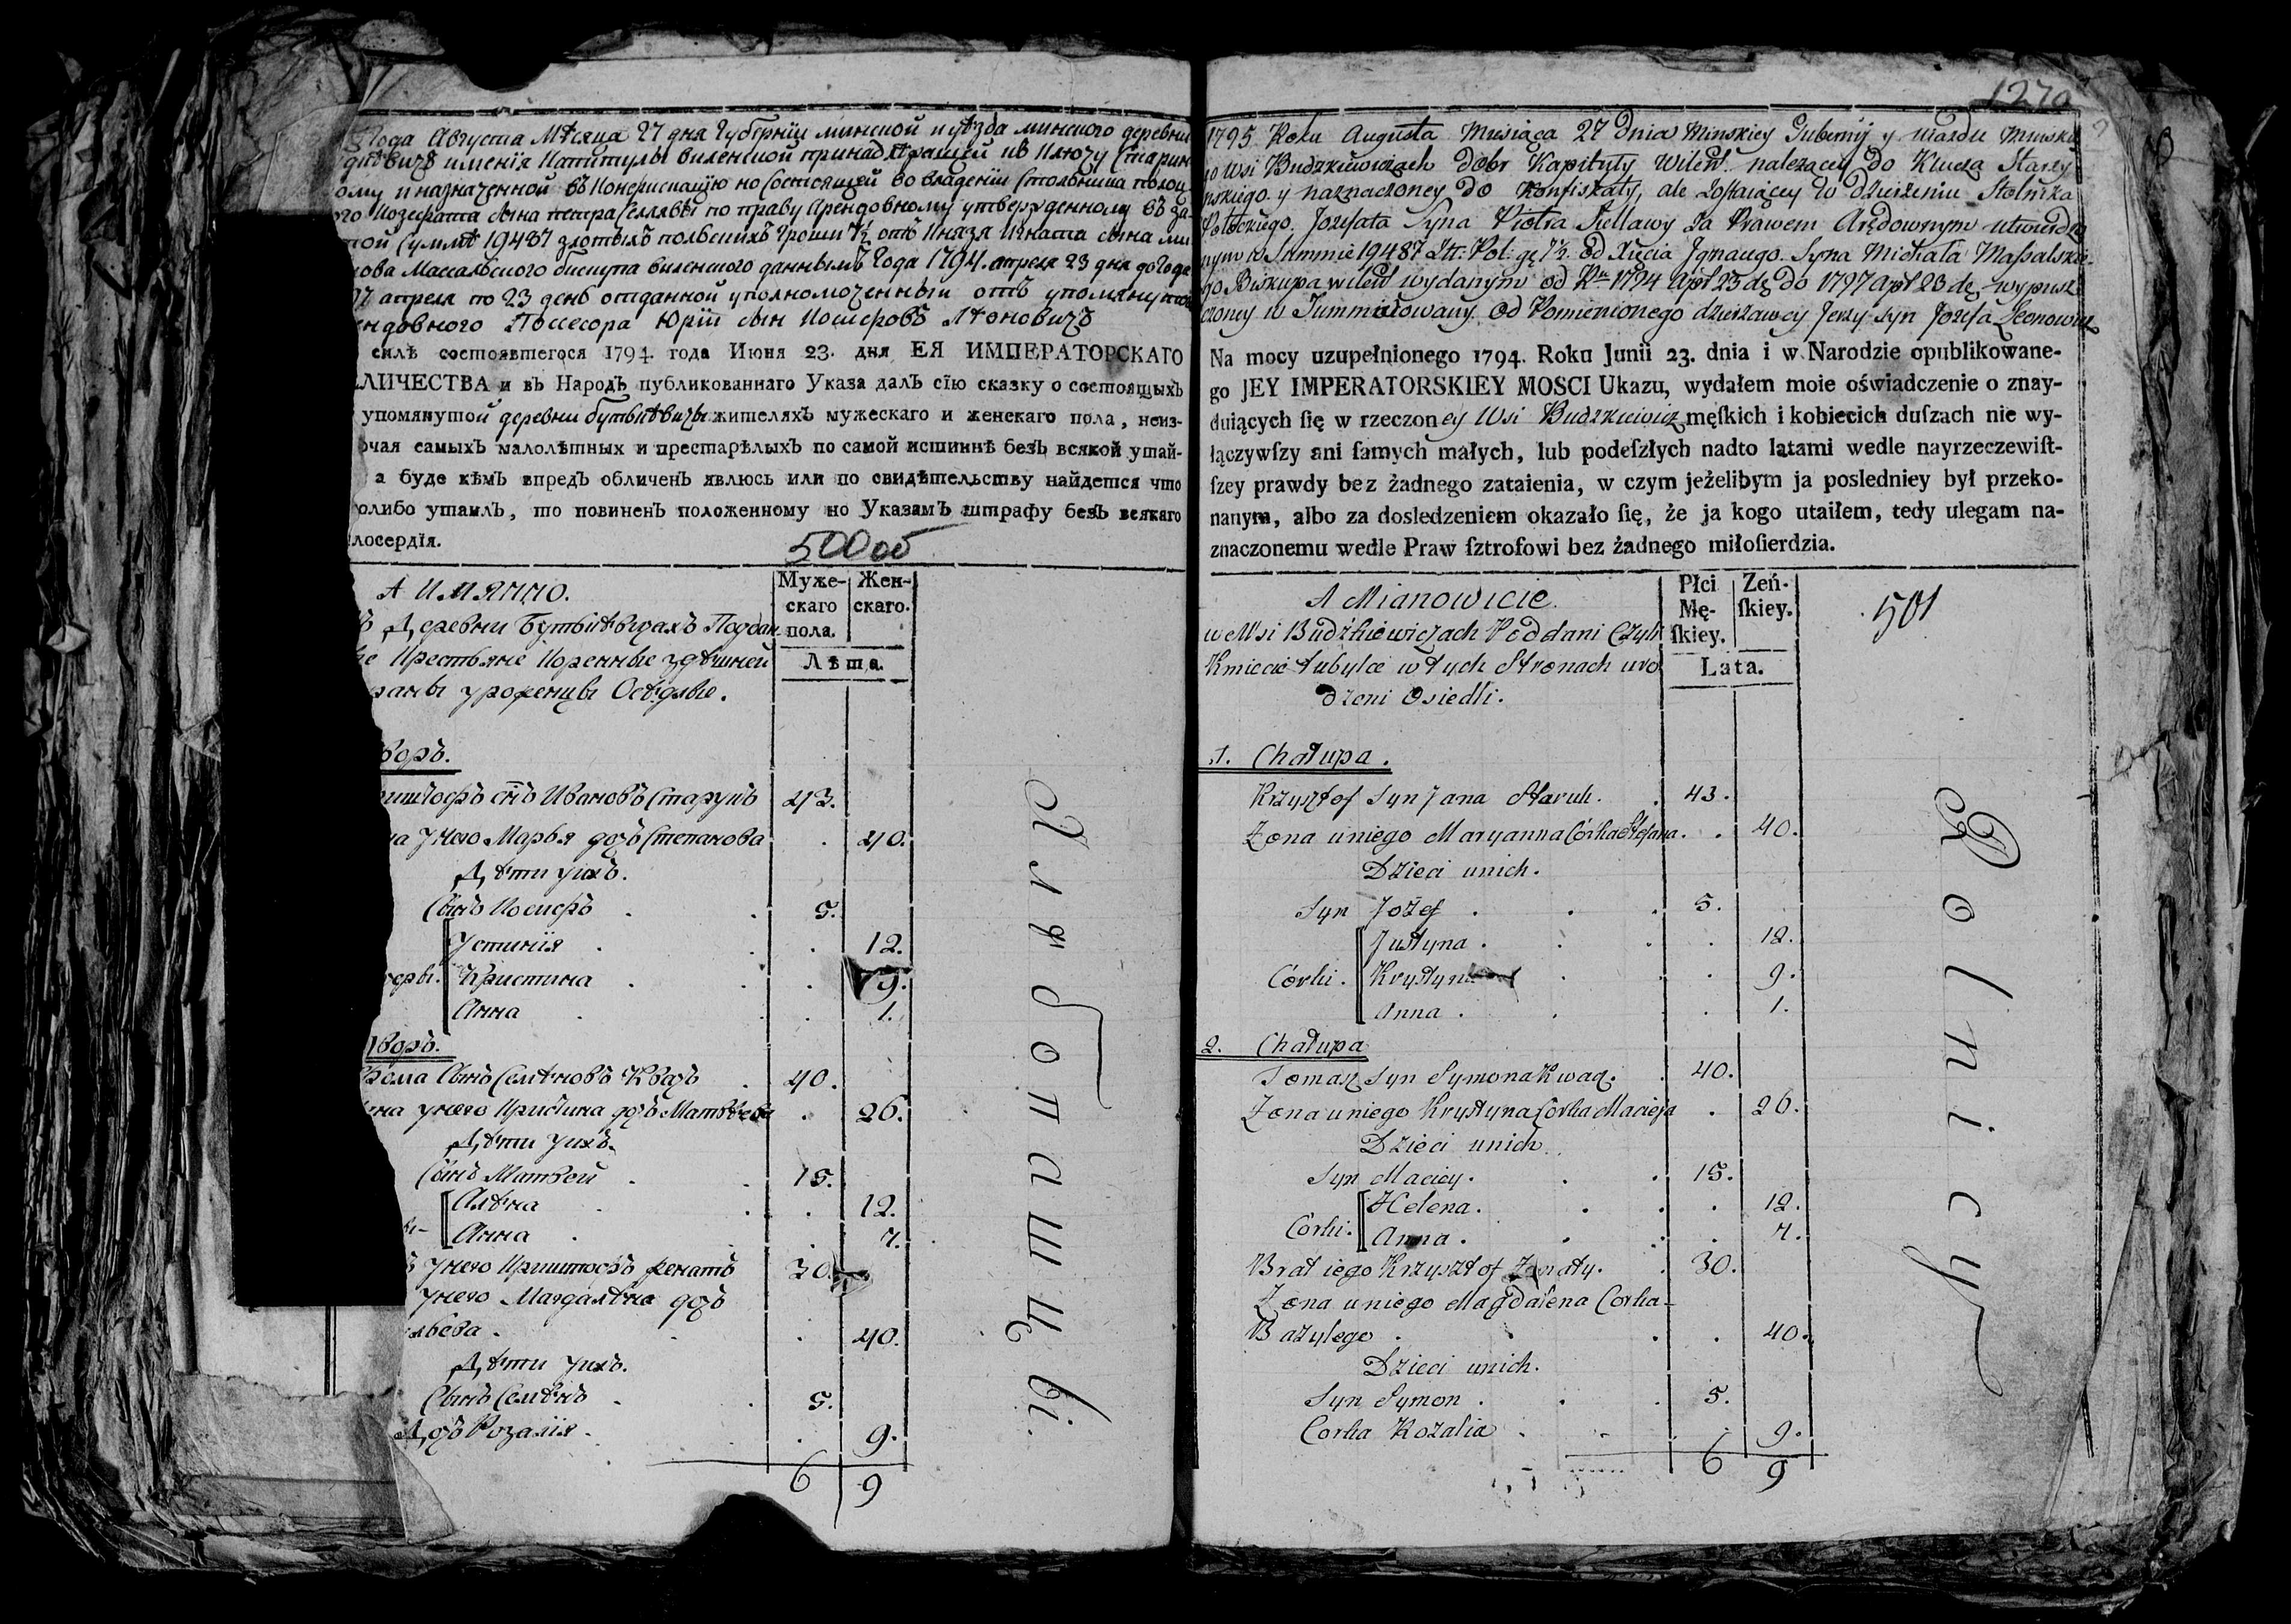 Года Августа Мѣсяца 27 дня Губернїи минской и уѣзда минского деревни
имѣнія Капитулы виленской принадлѣжащей къ Ключу Старин
ому и назначенной въ Конфискацію но Состоящей во владѣніи Стольника полоц
го Иозефата Сына петра Селлявы по праву Арендовному утвержденному въ за
ной Суммѣ 19487 злотыхъ польскихъ Гроши 7½ отъ Князя Игната сына ми
лова Массальского бискупа виленского даннымъ Года 1794. апреля 23 дня до Года
97 апреля по 23 день отданной уполномоченный отъ упомянутого
ендовного Поссесора Юрїй сын Иосифовъ Леоновичъ
силѣ состоявшегося 1794. года Июня 23. дня ЕЯ ИМПЕРАТОРСКАГО
ЛИЧЕСТВА и въ Народъ публикованнаго Указа далъ сїю сказку о состоящыхъ
упомянутой деревни бутькѣвичы жителяхъ мужескаго и женскаго пола, неиз-
ючая самыхъ малолѣтныхъ и престарѣлыхъ по самой истиннѣ безъ всякой утай-
а буде кѣмъ впредъ обличенъ явлюсь или по свидѣтельству найдется что
олибо утаилъ, то повиненъ положенному по Указамъ штрафу безъ всякаго
лосердїя.
500 об
А ИМЯННО.
Муже-скаго пола.
Жен-скаго.
Деревни Бутькѣвичахъ Поддан
е Крестьяне Коренные здѣшней
раны уроженцы Осѣдлые.
Лѣта.
воръ.
иштофъ снъ Ивановъ Старухъ 43.
на унего Марья дочь Степанова . 40.
Дѣти ихъ.
Сынъ Иосифъ . . 5.
Устинїя . . . 12.
ери. Кристина . . . 9.
Анна . . . 1.
воръ.
Сынъ Семѣновъ Квачъ . 40.
на унего Кристина дочь Матвѣева . 26.
Дѣти ихъ.
Сынъ Матвей . . 15.
Алѣна . . . 12.
Анна . . . 7.
унего Криштофъ женатъ 30.
унего Магдалѣна дочь
льева . . . 40.
Дѣти ихъ.
Сынъ Семѣнъ . . 5.
Дочь Розалїя . . 9.
6 9
Хлѣбопашцы.
1270
1795 Roku Augusta Miesiąca 27 Dnia Minskiey Gubernij y uiazdu Minskie
go Wsi Budzkiewiczach dobr Kapituły Wileń. należącey do Klucza Starzy
nskiego. y naznaczoney do Konfiskaty, ale zostaiącey w dzierżeniu Stolnika
Połockiego. Jozefata Syna Piotra Siellawy za Prawem Arędownym utwierdzo
nym w Summie 19487 Złł: Pol: gr 7½. od Xięcia Jgnacego. Syna Michała Massalskie
go Biskupa wileń wydanym od Rku 1794 Apr 23 dz do 1797 Apr 23 dz. wypusz
czoney w Jummistowany od Pomienionego dzierżawcy Jerzy Syn Jozefa Leonowicz
Na mocy uzupełnionego 1794. Roku Junii 23. dnia i w Narodzie opublikowane-
go JEY IMPERATORSKIEY MOSCI Ukazu, wydałem moie oświadczenie o znay-
duiących ſię w rzeczoney Wsi Budzkiewicz męſkich i kobiecich duſzach nie wy-
łączywſzy ani ſamych małych, lub podeſzłych nadto latami wedle nayrzeczewiſt-
ſzey prawdy bez żadnego zataienia, w czym jeżelibym ja posledniey był przeko-
nanym, albo za dosledzeniem okazało ſię, że ja kogo utaiłem, tedy ulegam na-
znaczonemu wedle Praw ſztrofowi bez żadnego miłoſierdzia.
A Mianowicie.
Płci Mę-ſkiey.
Zeń-ſkiey.
501
we Wsi Budźkiewiczach Poddani Czyli
Kmiecie tubylce w tych Stronach uro
dzeni Osiedli.
Lata.
1. Chałupa.
Krzysztof Syn Jana Staruh. . 43.
Zona uniego Maryanna Córka Stefana. . 40.
Dzieci unich.
Syn Jozef . . . 5.
Justyna . . . . 12.
Córki. Krystyna . . . 9.
Anna . . . . 1.
2. Chałupa
Tomasz Syn Symona Kwacz. . 40.
Zona uniego Krystyna Corka Macieja . 26.
Dzieci unich.
Syn Maciey. . . 15.
Helena. . . . 12.
Córki. Anna . . . . 7.
Brat iego Krzysztof Zonaty. . 30.
Zona uniego Magdalena Corka-
Bazylego . . . 40.
Dzieci unich.
Syn Symon . . . 5.
Corka Rozalia . . . 9.
6 9
Rolnicy